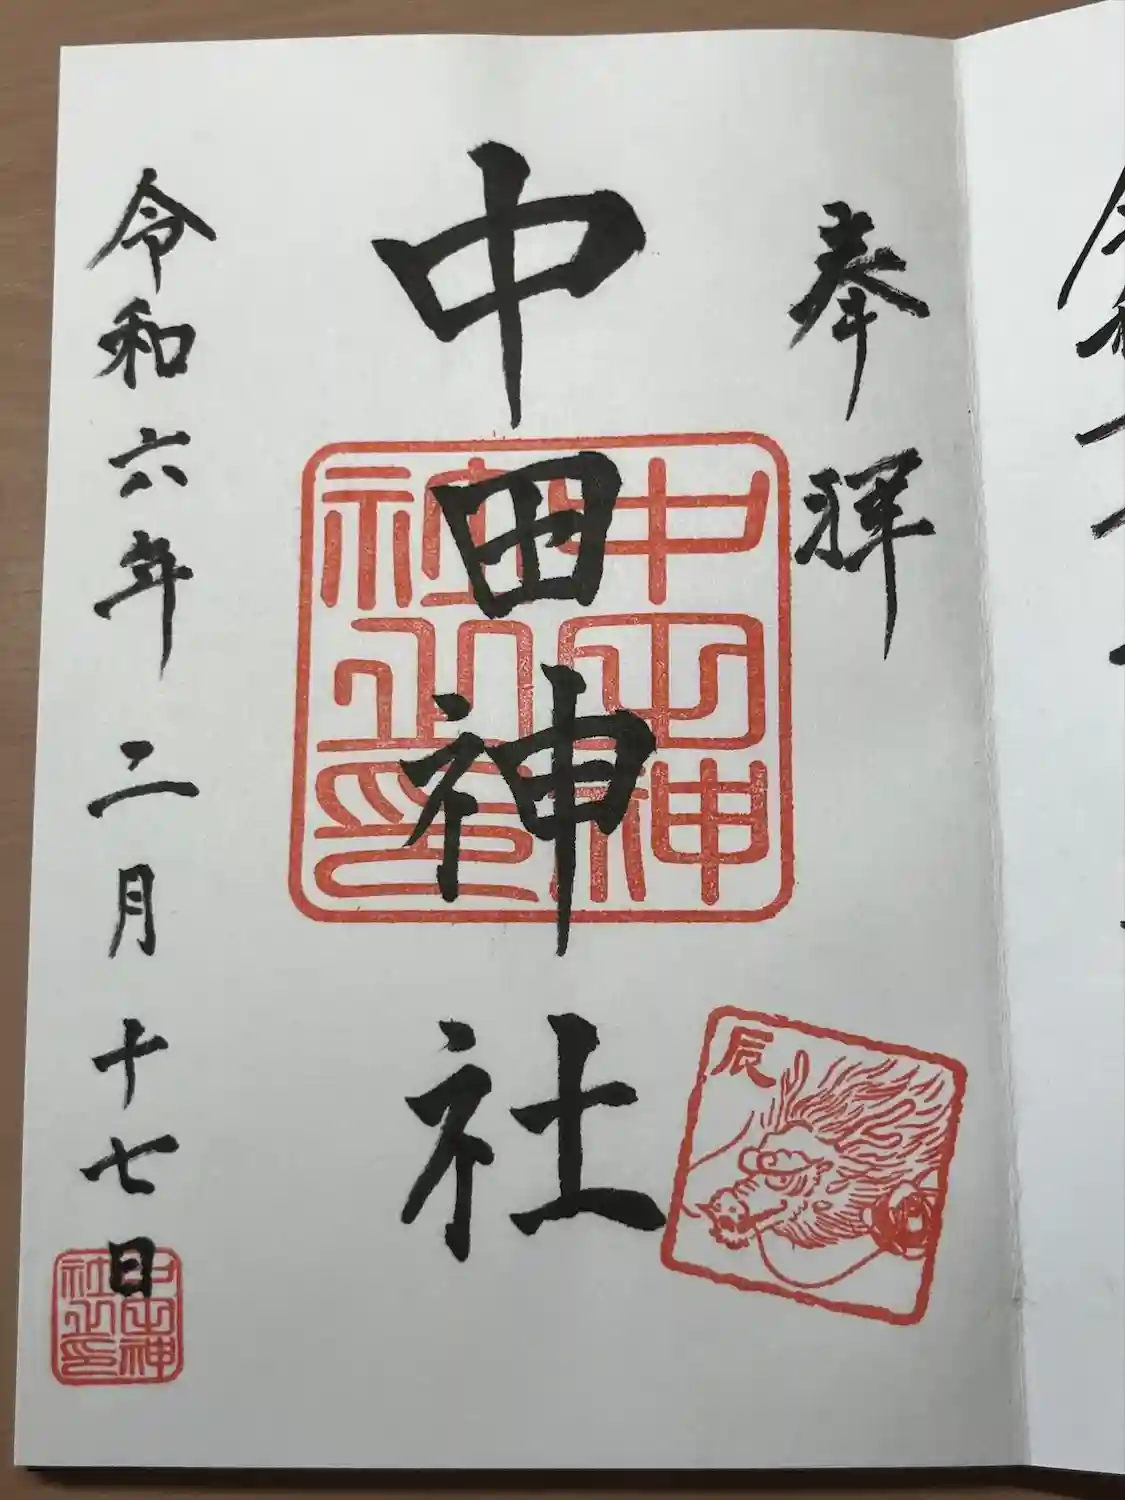 奉拝
中田神社
中田神社之印
辰
令和六年二月十七日
中田神社之印